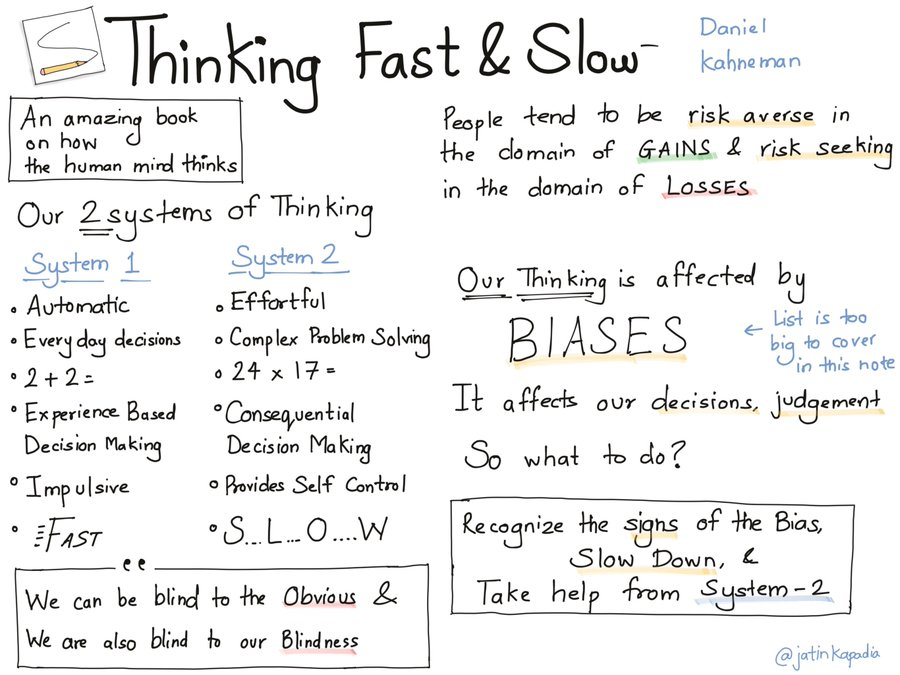 Thinking Fast & Slow
Daniel
Kahneman
An amazing book
on how
the human mind thinks
Our 2 systems of Thinking
System 1
• Automatic
• Everyday decisions
• 2 + 2 =
• Experience Based
Decision Making
• Impulsive
• FAST
System 2
• Effortful
• Complex Problem Solving
• 24 x 17 =
• Consequential
Decision Making
• Provides Self Control
• S...L...O....W
“
We can be blind to the Obvious &
We are also blind to our Blindness
People tend to be risk averse in
the domain of GAINS & risk seeking
in the domain of LOSSES
Our Thinking is affected by
BIASES
← List is too
big to cover
in this note
It affects our decisions, judgement
So what to do?
Recognize the signs of the Bias,
Slow Down, &
Take help from System-2
@jatinkapadia